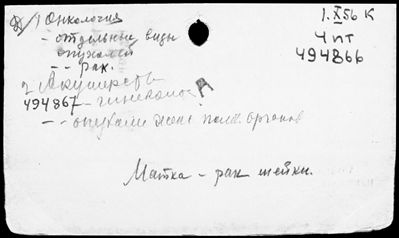 1 Онкология
1.X56 К
- отдельные виды
опухолей
Чпт
494866
- - рак.
2 Акушерство
494867 - гинеколог
- - опухоли жен. пол. органов
Матка - рак шейки.